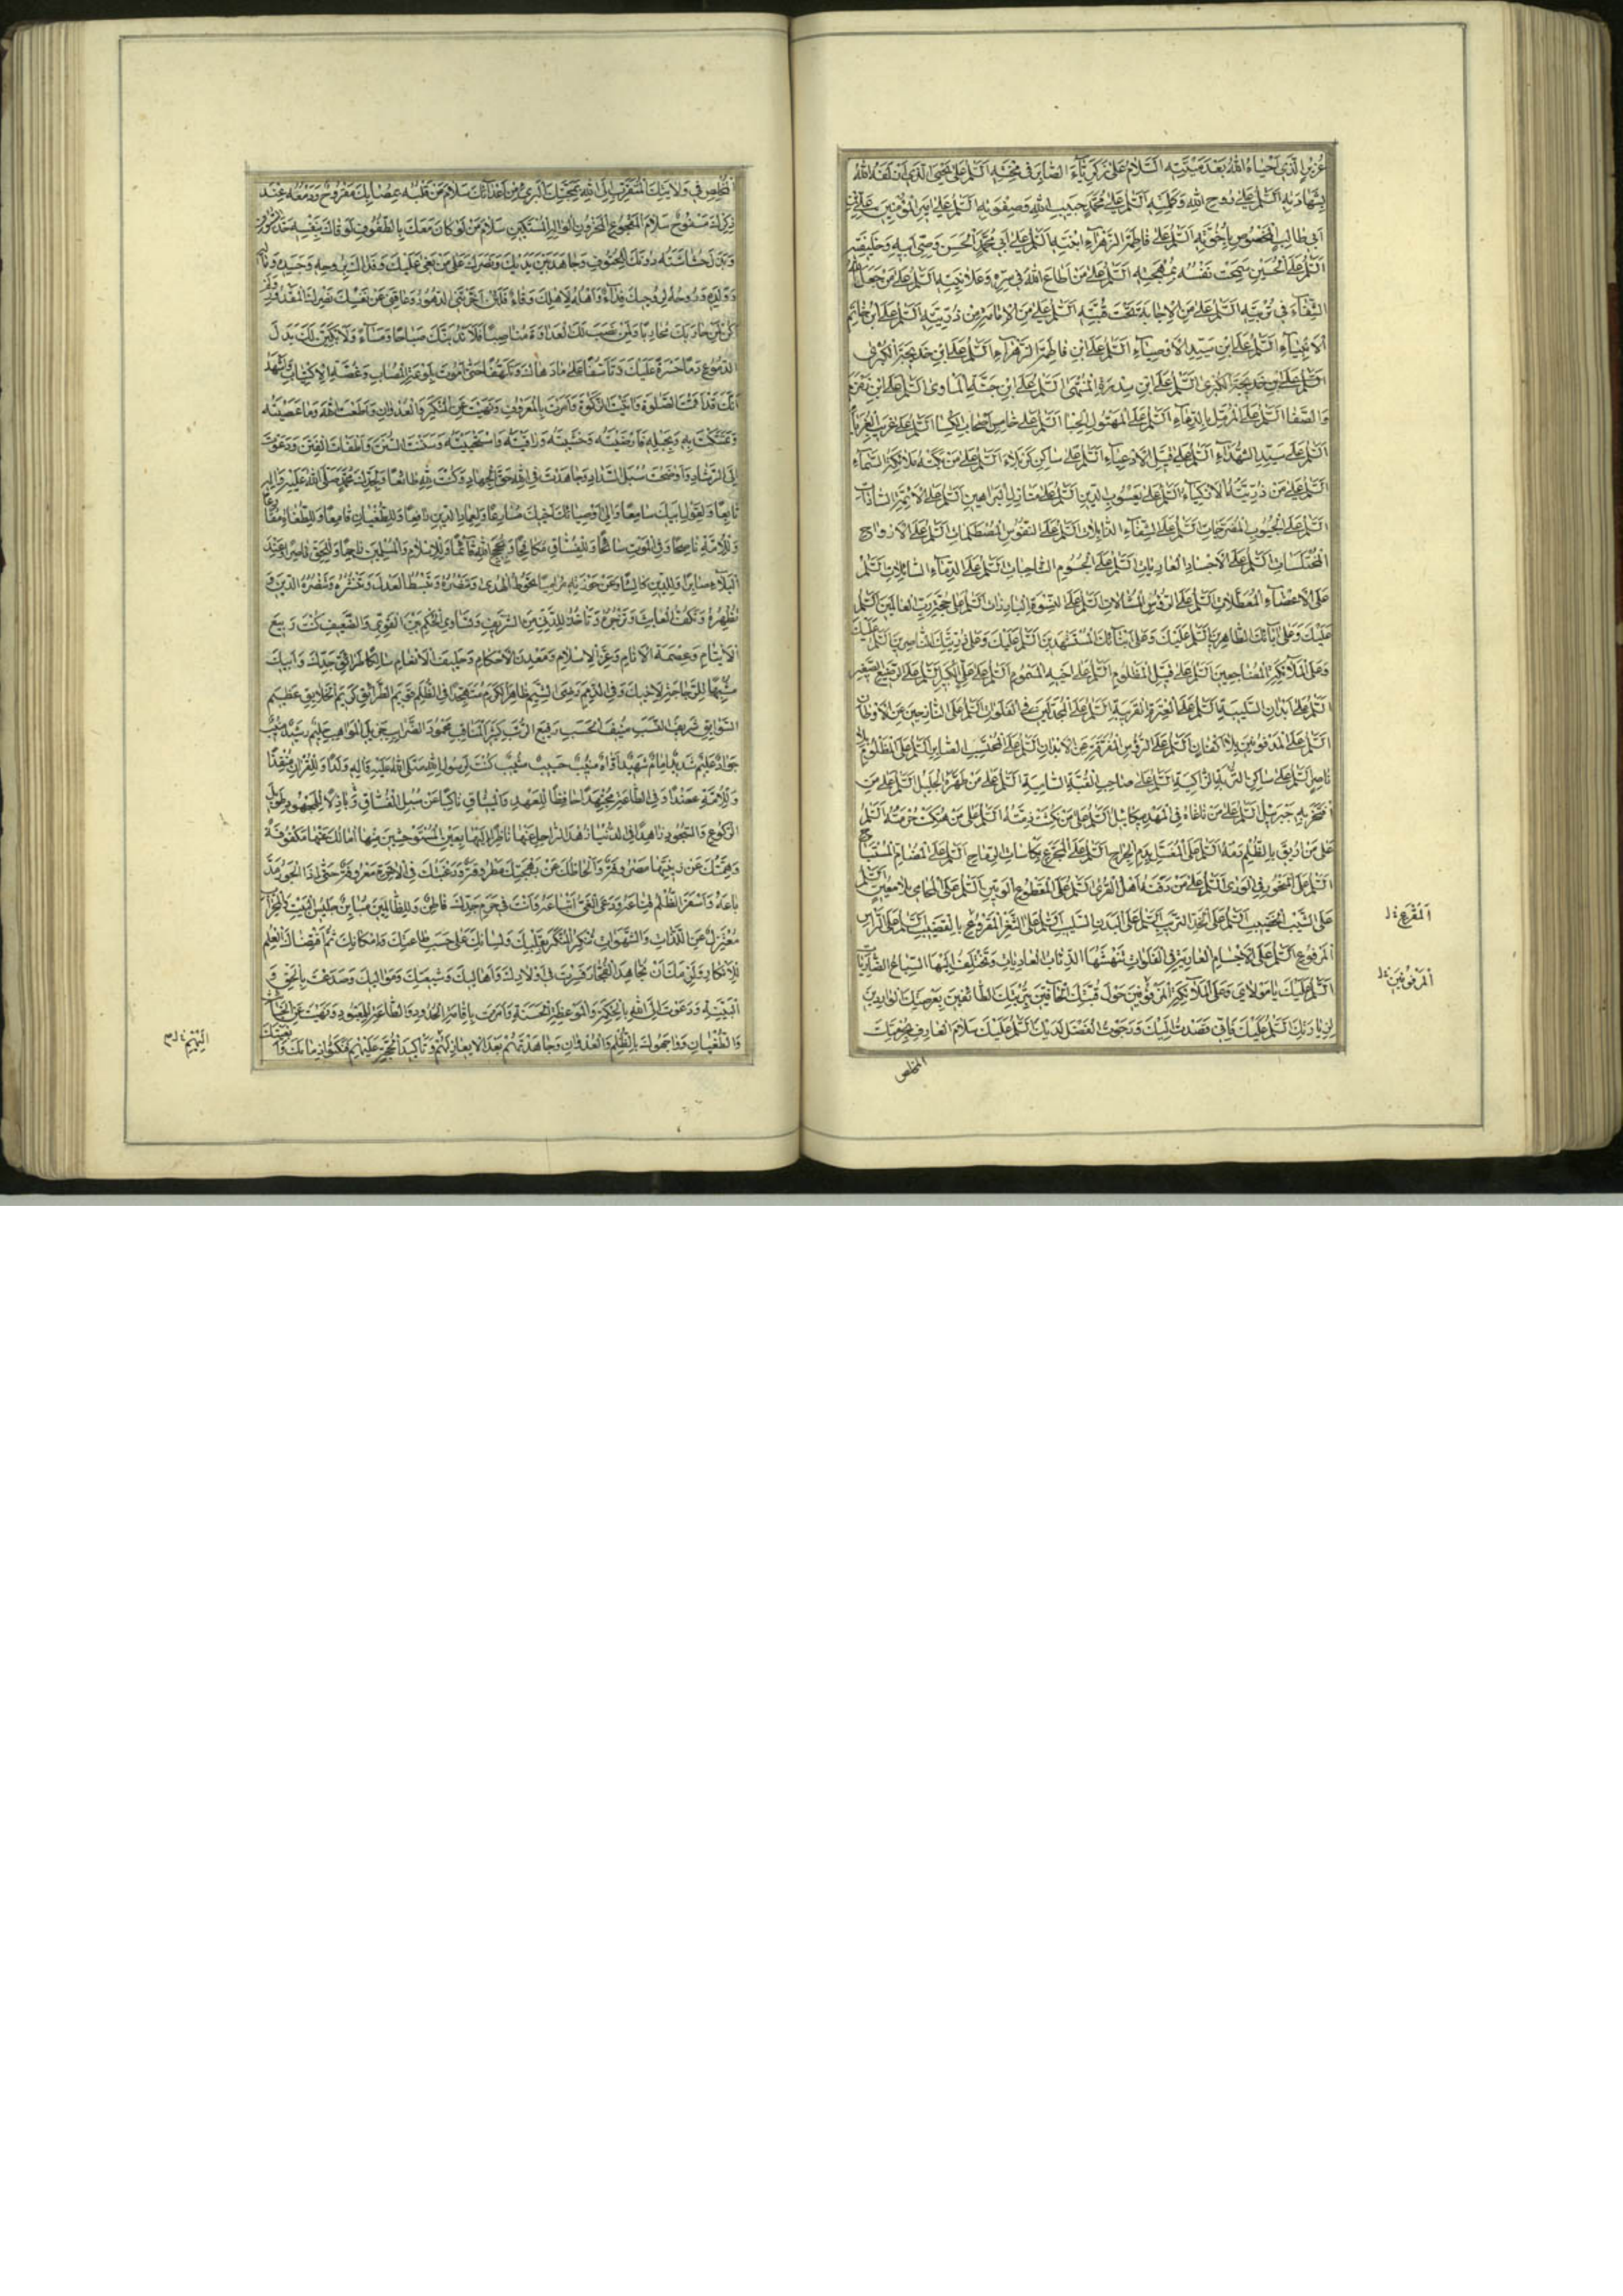 عُزَيْرٍ الَّذي اَحْياهُ اللهُ بَعْدَ مَيْتَتِهِ اَلسَّلامُ عَلى زَكَرِيّآءَ الصّابِرِ في مِحْنَتِهِ اَلسَّلامُ عَلى يَحْيَى الَّذي اَزْلَفَهُ اللهُ
بِشَهادَتِهِ اَلسَّلامُ عَلى رُوحِ اللهِ وَكَلِمَتِهِ اَلسَّلامُ عَلى مُحَمَّدٍ حَبيبِ اللهِ وَصِفْوَتِهِ اَلسَّلامُ عَلى اَميرِ الْمُؤْمِنينَ عَلِيِّ بْنِ
اَبي طالِبٍ الْمَخْصُوصِ بِاُخُوَّتِهِ اَلسَّلامُ عَلى فاطِمَةَ الزَّهْرآءِ ابْنَتِهِ اَلسَّلامُ عَلى اَبي مُحَمَّدٍ الْحَسَنِ وَصِيِّ اَبيهِ وَخَليفَتِهِ
اَلسَّلامُ عَلَى الْحُسَيْنِ سَمَحَتْ نَفْسُهُ بِمُهْجَتِهِ اَلسَّلامُ عَلى مَنْ اَطاعَ اللهَ في سِرِّهِ وَعَلانِيَتِهِ اَلسَّلامُ عَلى مَنْ جَعَلَ اللهُ
الشِّفآءَ في تُرْبَتِهِ اَلسَّلامُ عَلى مَنِ الْاِجابَةُ تَحْتَ قُبَّتِهِ اَلسَّلامُ عَلى مَنِ الْاَئِمَّةُ مِنْ ذُرِّيَّتِهِ اَلسَّلامُ عَلَى ابْنِ خاتَمِ
الْاَنْبِيآءِ اَلسَّلامُ عَلَى ابْنِ سَيِّدِ الْاَوْصِيآءِ اَلسَّلامُ عَلَى ابْنِ فاطِمَةَ الزَّهْرآءِ اَلسَّلامُ عَلَى ابْنِ خَديجَةَ الْكُبْرى
اَلسَّلامُ عَلَى ابْنِ خَديجَةَ الْكُبْرى اَلسَّلامُ عَلَى ابْنِ سِدْرَةِ الْمُنْتَهى اَلسَّلامُ عَلَى ابْنِ جَنَّةِ الْمَأْوى اَلسَّلامُ عَلَى ابْنِ زَمْزَمَ
وَالصَّفا اَلسَّلامُ عَلَى الْمُرَمَّلِ بِالدِّمآءِ اَلسَّلامُ عَلَى الْمَهْتُوكِ الْخِبآ اَلسَّلامُ عَلى خامِسِ اَصْحابِ الْكِسآ اَلسَّلامُ عَلى غَريبِ الْغُرَبآءِ
اَلسَّلامُ عَلى سَيِّدِ الشُّهَدآءِ اَلسَّلامُ عَلى قَتيلِ الْاَدْعِيآءِ اَلسَّلامُ عَلى ساكِنِ كَرْبَلاءَ اَلسَّلامُ عَلى مَنْ بَكَتْهُ مَلائِكَةُ السَّمآءِ
اَلسَّلامُ عَلى مَنْ ذُرِّيَّتُهُ الْاَزْكِيآءُ اَلسَّلامُ عَلى يَعْسُوبِ الدّينِ اَلسَّلامُ عَلى مَنازِلِ الْبَراهينِ اَلسَّلامُ عَلَى الْاَئِمَّةِ السّاداتِ
اَلسَّلامُ عَلَى الْجُيُوبِ الْمُضَرَّجاتِ اَلسَّلامُ عَلَى الشِّفاهِ الذّابِلاتِ اَلسَّلامُ عَلَى النُّفُوسِ الْمُصْطَلَماتِ اَلسَّلامُ عَلَى الْاَرْواحِ
الْمُخْتَلَساتِ اَلسَّلامُ عَلَى الْاَجْسادِ الْعارِياتِ اَلسَّلامُ عَلَى الْجُسُومِ الشّاحِباتِ اَلسَّلامُ عَلَى الدِّمآءِ السّائِلاتِ اَلسَّلامُ
عَلَى الْاَعْضآءِ الْمُقَطَّعاتِ اَلسَّلامُ عَلَى الرُّؤُسِ الْمُشالاتِ اَلسَّلامُ عَلَى النِّسْوَةِ الْبارِزاتِ اَلسَّلامُ عَلى حُجَّةِ رَبِّ الْعالَمينَ اَلسَّلامُ
عَلَيْكَ وَعَلى ابآئِكَ الطّاهِرينَ اَلسَّلامُ عَلَيْكَ وَعَلى اَبْنآئِكَ الْمُسْتَشْهَدينَ اَلسَّلامُ عَلَيْكَ وَعَلى ذُرِّيَّتِكَ النّاصِرينَ اَلسَّلامُ عَلَيْكَ
وَعَلَى الْمَلآئِكَةِ الْمُضاجِعينَ اَلسَّلامُ عَلَى الْقَتيلِ الْمَظْلُومِ اَلسَّلامُ عَلى اَخيهِ الْمَسْمُومِ اَلسَّلامُ عَلى عَلِيٍّ الْكَبيرِ اَلسَّلامُ عَلَى الرَّضيعِ الصَّغيرِ
اَلسَّلامُ عَلَى الْاَبْدانِ السَّليبَةِ اَلسَّلامُ عَلَى الْعِتْرَةِ الْقَريبَةِ اَلسَّلامُ عَلَى الْمُجَدَّلينَ فِي الْفَلَواتِ اَلسَّلامُ عَلَى النّازِحينَ عَنِ الْاَوْطانِ
اَلسَّلامُ عَلَى الْمَدْفُونينَ بِلا اَكْفانٍ اَلسَّلامُ عَلَى الرُّؤُسِ الْمُفَرَّقَةِ عَنِ الْاَبْدانِ اَلسَّلامُ عَلَى الْمُحْتَسِبِ الصّابِرِ اَلسَّلامُ عَلَى الْمَظْلُومِ بِلا
ناصِرٍ اَلسَّلامُ عَلى ساكِنِ التُّرْبَةِ الزّاكِيَةِ اَلسَّلامُ عَلى صاحِبِ الْقُبَّةِ السّامِيَةِ اَلسَّلامُ عَلى مَنْ طَهَّرَهُ الْجَليلُ اَلسَّلامُ عَلى مَنِ
افْتَخَرَ بِهِ جَبْرَئيلُ اَلسَّلامُ عَلى مَنْ ناغاهُ فِي الْمَهْدِ ميكائيلُ اَلسَّلامُ عَلى مَنْ نُكِثَتْ ذِمَّتُهُ اَلسَّلامُ عَلى مَنْ هُتِكَتْ حُرْمَتُهُ اَلسَّلامُ
عَلى مَنْ اُريقَ بِالظُّلْمِ دَمُهُ اَلسَّلامُ عَلَى الْمُغَسَّلِ بِدَمِ الْجِراحِ اَلسَّلامُ عَلَى الْمُجَرَّعِ بِكَاْساتِ الرِّماحِ اَلسَّلامُ عَلَى الْمُضامِ الْمُسْتَباحِ
اَلسَّلامُ عَلَى الْمَنْحُورِ فِي الْوَرى اَلسَّلامُ عَلى مَنْ دَفَنَهُ اَهْلُ الْقُرى اَلسَّلامُ عَلَى الْمَقْطُوعِ الْوَتينِ اَلسَّلامُ عَلَى الْمُحامي بِلا مُعينٍ اَلسَّلامُ
عَلَى الشَّيْبِ الْخَضيبِ اَلسَّلامُ عَلَى الْخَدِّ التَّريبِ اَلسَّلامُ عَلَى الْبَدَنِ السَّليبِ اَلسَّلامُ عَلَى الثَّغْرِ الْمَقْرُوعِ بِالْقَضيبِ اَلسَّلامُ عَلَى الرَّاْسِ
الْمَرْفُوعِ اَلسَّلامُ عَلَى الْاَجْسامِ الْعارِيَةِ فِي الْفَلَواتِ تَنْهَشُهَا الذِّئابُ الْعادِياتُ وَتَخْتَلِفُ اِلَيْهَا السِّباعُ الضّارِياتُ
اَلسَّلامُ عَلَيْكَ يا مَوْلايَ وَعَلَى الْمَلآئِكَةِ الْمَرْفُوفينَ حَوْلَ قُبَّتِكَ الْحآفّينَ بِتُرْبَتِكَ الطّآئِفينَ بِعَرْصَتِكَ الْوارِدينَ
لِزِيارَتِكَ اَلسَّلامُ عَلَيْكَ فَاِنّي قَصَدْتُ اِلَيْكَ وَرَجَوْتُ الْفَضْلَ لَدَيْكَ اَلسَّلامُ عَلَيْكَ سَلامَ الْعارِفِ بِحُرْمَتِكَ
المخلص
اَلْمُقْرَعِ
اَلْمَرْفُوفينَ
الْمُخْلِصِ في وَلايَتِكَ الْمُتَقَرِّبِ اِلَى اللهِ بِمَحَبَّتِكَ الْبَريءِ مِنْ اَعْدآئِكَ سَلامَ مَنْ قَلْبُهُ بِمُصابِكَ مَقْرُوحٌ وَدَمْعُهُ عِنْدَ
ذِكْرِكَ مَسْفُوحٌ سَلامَ الْمَفْجُوعِ الْمَحْزُونِ الْوالِهِ الْمُسْتَكينِ سَلامَ مَنْ لَوْ كانَ مَعَكَ بِالطُّفُوفِ لَوَقاكَ بِنَفْسِهِ حَدَّ السُّيُوفِ
وَبَذَلَ حُشاشَتَهُ دُونَكَ لِلْحُتُوفِ وَجاهَدَ بَيْنَ يَدَيْكَ وَنَصَرَكَ عَلى مَنْ بَغى عَلَيْكَ وَفَداكَ بِرُوحِهِ وَجَسَدِهِ وَمالِهِ
وَوَلَدِهِ وَرُوحُهُ لِرُوحِكَ فِدآءٌ وَاَهْلُهُ لِاَهْلِكَ وِقآءٌ فَلَئِنْ اَخَّرَتْنِي الدُّهُورُ وَعاقَني عَنْ نَصْرِكَ الْمَقْدُورُ وَلَمْ
اَكُنْ لِمَنْ حارَبَكَ مُحارِبًا وَلِمَنْ نَصَبَ لَكَ الْعَداوَةَ مُناصِبًا فَلَاَنْدُبَنَّكَ صَباحًا وَمَسآءً وَلَاَبْكِيَنَّ لَكَ بَدَلَ
الدُّمُوعِ دَمًا حَسْرَةً عَلَيْكَ وَتَاَسُّفًا عَلى ما دَهاكَ وَتَلَهُّفًا حَتّى اَمُوتَ بِلَوْعَةِ الْمُصابِ وَغُصَّةِ الْاِكْتِيابِ اَشْهَدُ
اَنَّكَ قَدْ اَقَمْتَ الصَّلوةَ وَاتَيْتَ الزَّكوةَ وَاَمَرْتَ بِالْمَعْرُوفِ وَنَهَيْتَ عَنِ الْمُنْكَرِ وَالْعُدْوانِ وَاَطَعْتَ اللهَ وَما عَصَيْتَهُ
وَتَمَسَّكْتَ بِهِ وَبِحَبْلِهِ فَاَرْضَيْتَهُ وَخَشيتَهُ وَراقَبْتَهُ وَاسْتَجَبْتَهُ وَسَنَنْتَ السُّنَنَ وَاَطْفَاْتَ الْفِتَنَ وَدَعَوْتَ
اِلَى الرَّشادِ وَاَوْضَحْتَ سُبُلَ السَّدادِ وَجاهَدْتَ فِي اللهِ حَقَّ الْجِهادِ وَكُنْتَ لِلّهِ طآئِعًا وَلِجَدِّكَ مُحَمَّدٍ صَلَّى اللهُ عَلَيْهِ وَالِهِ
تابِعًا وَلِقَوْلِ اَبيكَ سامِعًا وَاِلى وَصِيَّةِ اَخيكَ مُسارِعًا وَلِعِمادِ الدّينِ رافِعًا وَلِلطُّغْيانِ قامِعًا وَلِلطُّغاةِ مُقارِعًا
وَلِلْاُمَّةِ ناصِحًا وَفي غَمَراتِ الْمَوْتِ سابِحًا وَلِلْفُسّاقِ مُكافِحًا وَبِحُجَجِ اللهِ قآئِمًا وَلِلْاِسْلامِ وَالْمُسْلِمينَ راحِمًا وَلِلْحَقِّ ناصِرًا وَعِنْدَ
الْبَلآءِ صابِرًا وَلِلدّينِ كالِئًا وَعَنْ حَوْزَتِهِ مُرامِيًا تَحُوطُ الْهُدى وَتَنْصُرُهُ وَتَبْسُطُ الْعَدْلَ وَتَنْشُرُهُ وَتَنْصُرُ الدّينَ وَ
تُظْهِرُهُ وَتَكُفُّ الْعابِثَ وَتَزْجُرُهُ وَتَاْخُذُ لِلدَّنِيِّ مِنَ الشَّريفِ وَتُساوي فِي الْحُكْمِ بَيْنَ الْقَوِيِّ وَالضَّعيفِ كُنْتَ رَبيعَ
الْاَيْتامِ وَعِصْمَةَ الْاَنامِ وَعِزَّ الْاِسْلامِ وَمَعْدِنَ الْاَحْكامِ وَحَليفَ الْاِنْعامِ سالِكًا طَرآئِقَ جَدِّكَ وَاَبيكَ
مُشْبِهًا فِي الْوَصِيَّةِ لِاَخيكَ وَفِيَّ الذِّمَمِ رَضِيَّ الشِّيَمِ ظاهِرَ الْكَرَمِ مُتَهَجِّدًا فِي الظُّلَمِ قَويمَ الطَّرآئِقِ كَريمَ الْخَلايِقِ عَظيمَ
السَّوابِقِ شَريفَ النَّسَبِ مُنيفَ الْحَسَبِ رَفيعَ الرُّتَبِ كَثيرَ الْمَناقِبِ مَحْمُودَ الضَّرآئِبِ جَزيلَ الْمَواهِبِ حَليمٌ رَشيدٌ مُنيبٌ
جَوادٌ عَليمٌ شَديدٌ اِمامٌ شَهيدٌ اَوّاهٌ مُنيبٌ حَبيبٌ مُهيبٌ كُنْتَ لِلرَّسُولِ صَلَّى اللهُ عَلَيْهِ وَالِهِ وَلَدًا وَلِلْقُرْانِ مُنْقِذًا
وَلِلْاُمَّةِ عَضُدًا وَفِي الطّاعَةِ مُجْتَهِدًا حافِظًا لِلْعَهْدِ وَالْميثاقِ ناكِبًا عَنْ سُبُلِ الْفُسّاقِ وَباذِلًا لِلْمَجْهُودِ طَويلَ
الرُّكُوعِ وَالسُّجُودِ زاهِدًا فِي الدُّنْيا زُهْدَ الرّاحِلِ عَنْها ناظِرًا اِلَيْها بِعَيْنِ الْمُسْتَوْحِشينَ مِنْها امالُكَ عَنْها مَكْفُوفَةٌ
وَهِمَّتُكَ عَنْ زينَتِها مَصْرُوفَةٌ وَاَلْحاظُكَ عَنْ بَهْجَتِها مَطْرُوفَةٌ وَرَغْبَتُكَ فِي الْاخِرَةِ مَعْرُوفَةٌ حَتّى اِذَا الْجَوْرُ مَدَّ
باعَهُ وَاَسْفَرَ الظُّلْمُ قِناعَهُ وَدَعَا الْغَيُّ اَتْباعَهُ وَاَنْتَ في حَرَمِ جَدِّكَ قاطِنٌ وَلِلظّالِمينَ مُبايِنٌ جَليسُ الْبَيْتِ وَالْمِحْرابِ
مُعْتَزِلٌ عَنِ اللَّذّاتِ وَالشَّهَواتِ تُنْكِرُ الْمُنْكَرَ بِقَلْبِكَ وَلِسانِكَ عَلى حَسَبِ طاقَتِكَ وَاِمْكانِكَ ثُمَّ اقْتَضاكَ الْعِلْمُ
لِلْاِنْكارِ وَلَزِمَكَ اَنْ تُجاهِدَ الْفُجّارَ فَسِرْتَ في اَوْلادِكَ وَاَهاليكَ وَشيعَتِكَ وَمَواليكَ وَصَدَعْتَ بِالْحَقِّ وَ
الْبَيِّنَةِ وَدَعَوْتَ اِلَى اللهِ بِالْحِكْمَةِ وَالْمَوْعِظَةِ الْحَسَنَةِ وَاَمَرْتَ بِاِقامَةِ الْحُدُودِ وَالطّاعَةِ لِلْمَعْبُودِ وَنَهَيْتَ عَنِ الْخَبآئِثِ
وَالطُّغْيانِ وَواجَهُوكَ بِالظُّلْمِ وَالْعُدْوانِ وَجاهَدْتَهُمْ بَعْدَ الْاِيعادِ لَهُمْ وَتَاْكيدِ الْحُجَّةِ عَلَيْهِمْ فَنَكَثُوا ذِمامَكَ وَ بَيْعَتَكَ